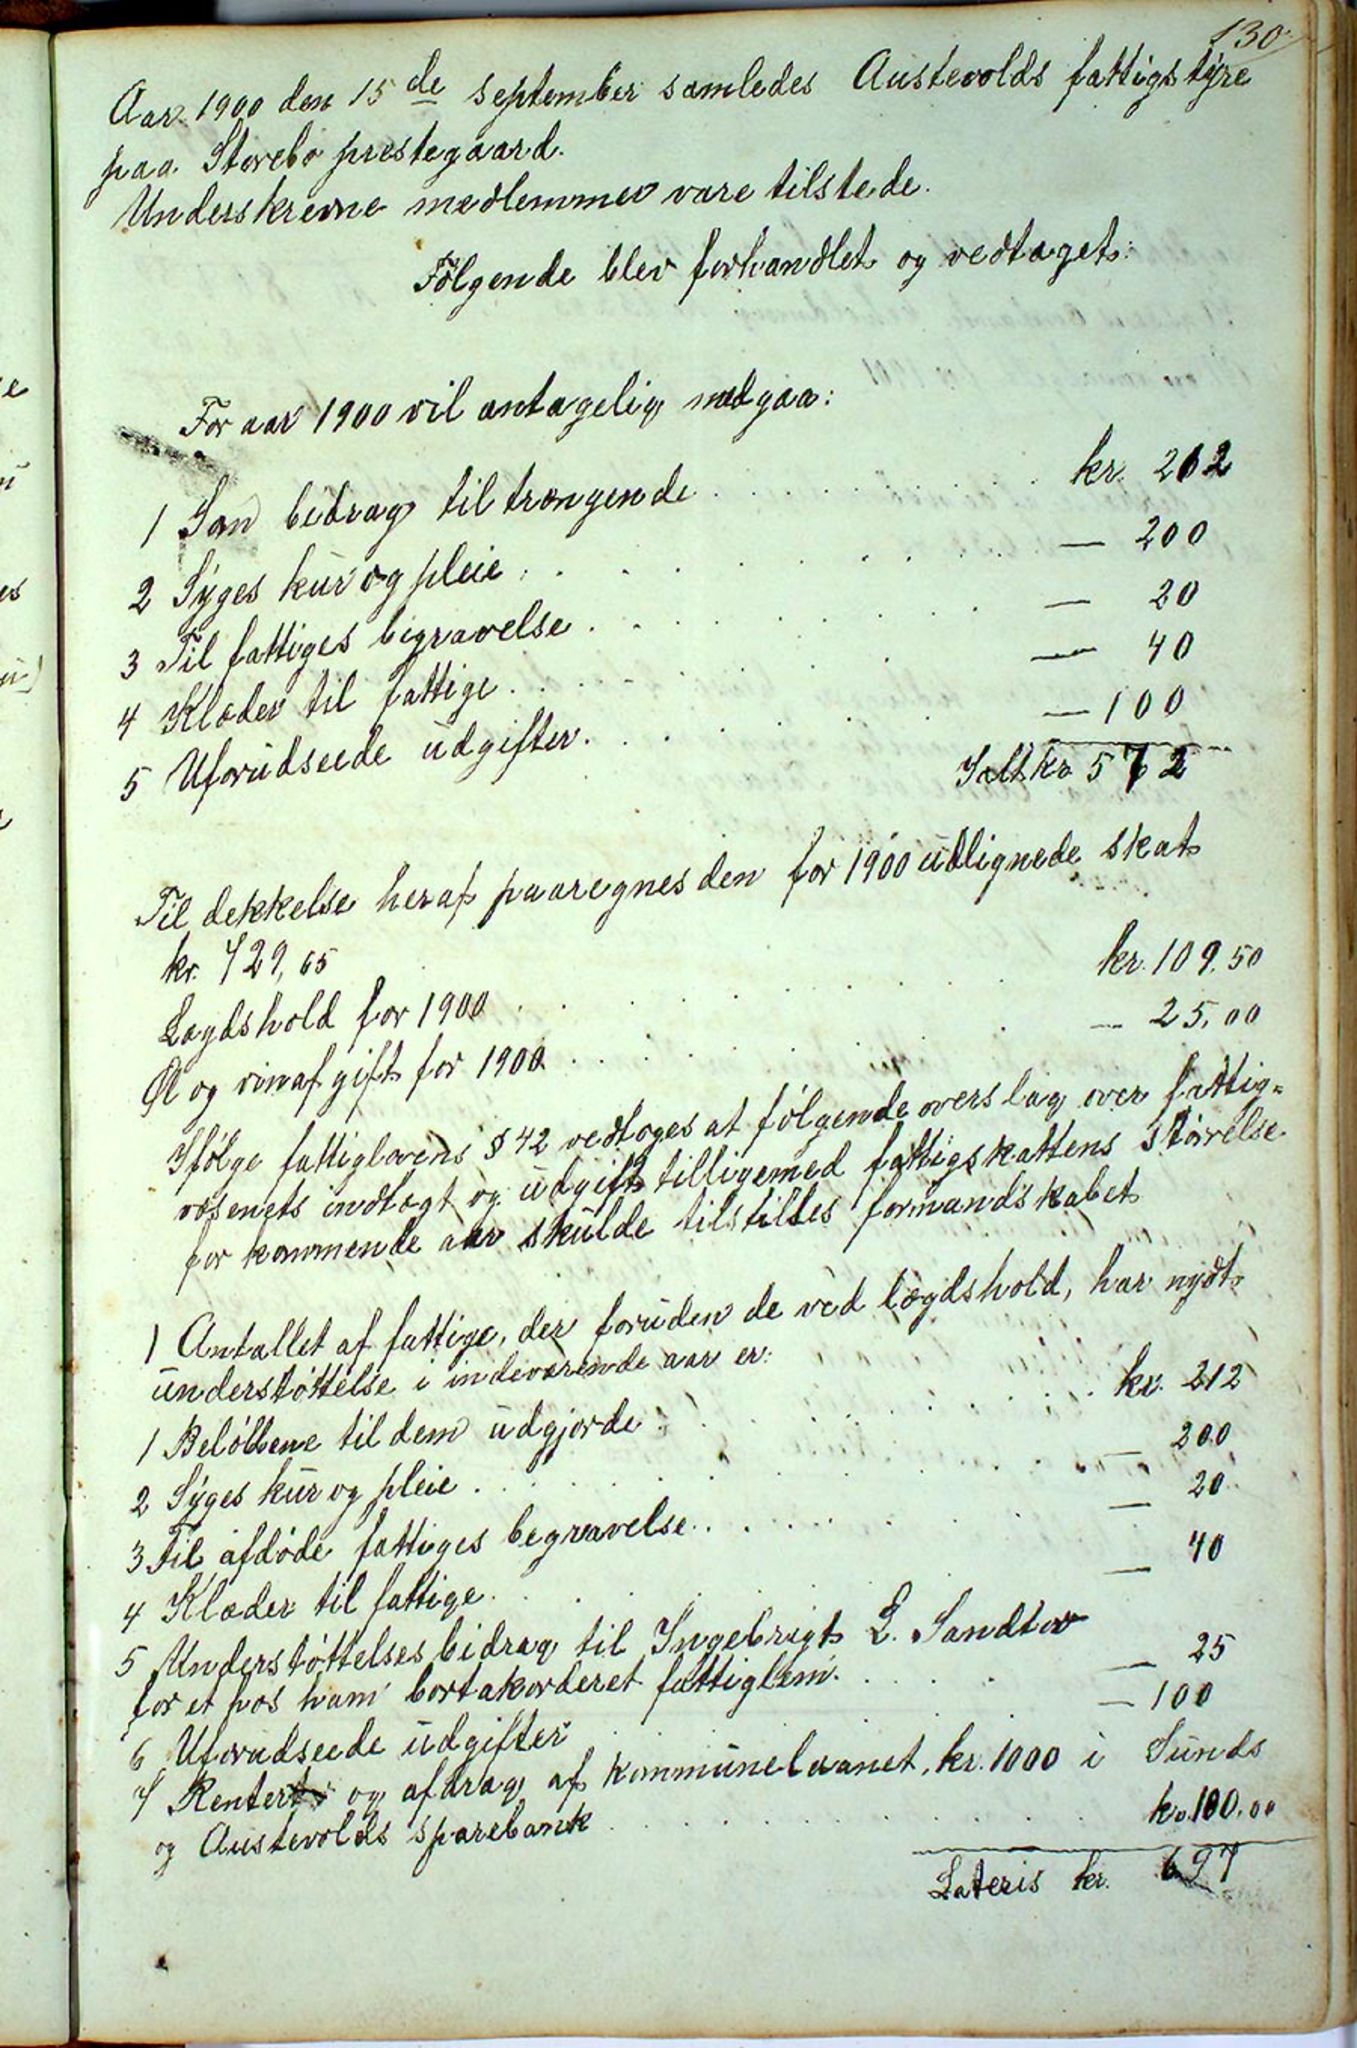 130.
Aar 1900 den 15de september samledes Austevolds fattigstyre
paa Storebø prestegaard.
Underskrevne medlemmer vare tilstede.
Følgende blev forhandlet og vedtaget:
For aar 1900 vil antagelig medgaa:
1 Som bidrag til trængende . . . . . . . . . kr. 212
2 Syges kur og pleie . . . . . . . . . — 200
3 Til fattiges begravelse . . . . . . . . — 20
4 Klæder til fattige . . . . . . . . — 40
5 Uforudseede udgifter . . . . . . . . — 100
Ialt kr 572
Til dekkelse heraf paaregnes den for 1900 udlignede skat
kr. 729,65
Lægdshold for 1900 . . . . . . . . . kr. 109.50
Øl og vinafgift for 1900 . . . . . . . . — 25.00
Ifølge fattiglovens § 42 vedtoges at følgende overslag over fattig=
væsenets indtægt og udgift tilligemed fattigskattens størrelse
for kommende aar skulde tilstilles formandskabet
1 Antallet af fattige, der foruden de ved lægdshold, har nydt
understøttelse i indeværende aar er:
1 Beløbene til dem udgjorde . . . . . . . . kr. 212
2 Syges kur og pleie . . . . . . . . — 200
3 Til afdøde fattiges begravelse . . . . . . . — 20
4 Klæder til fattige . . . — 40
5 Understøttelsesbidrag til Ingebrigt L. Sandtov
for et hos ham bortakorderet fattiglem . . . . — 25
6 Uforudseede udgifter — 100
7 Renter og afdrag af kommunelaanet, kr. 1000 i Sunds
og Austevolds sparebank . . . . . . . . kr. 100.00
Lateris kr. 697